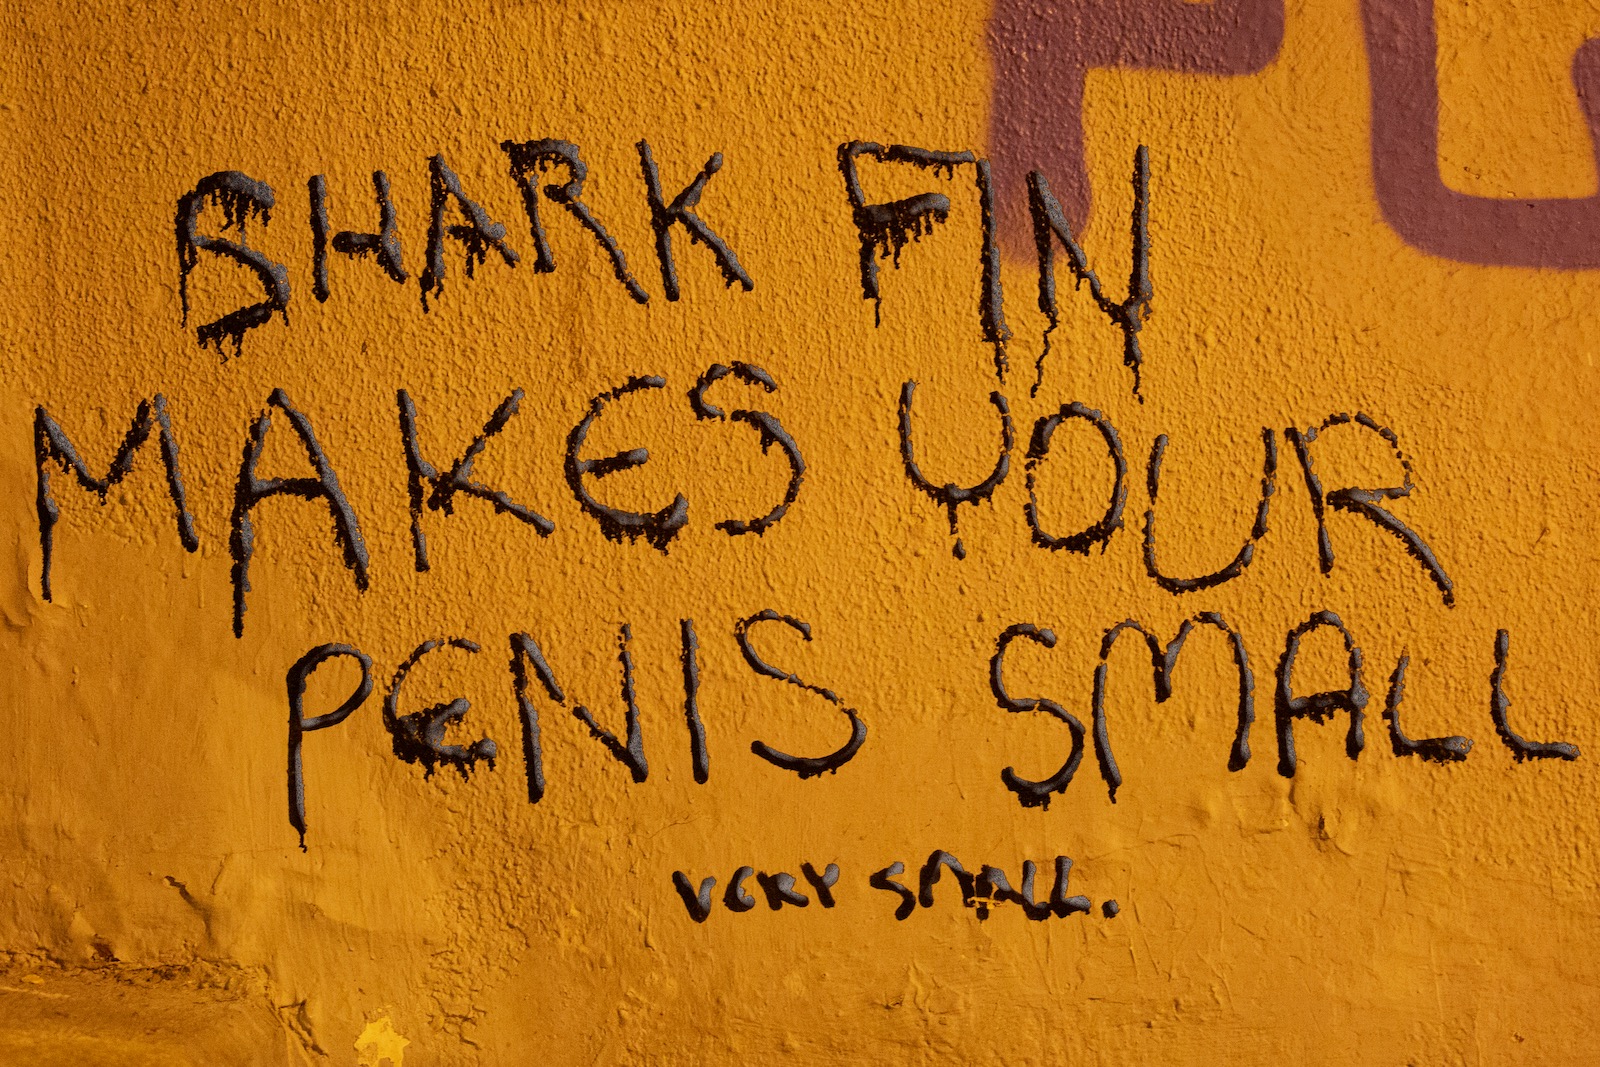 SHARK FIN
MAKES YOUR
PENIS SMALL
VERY SMALL.